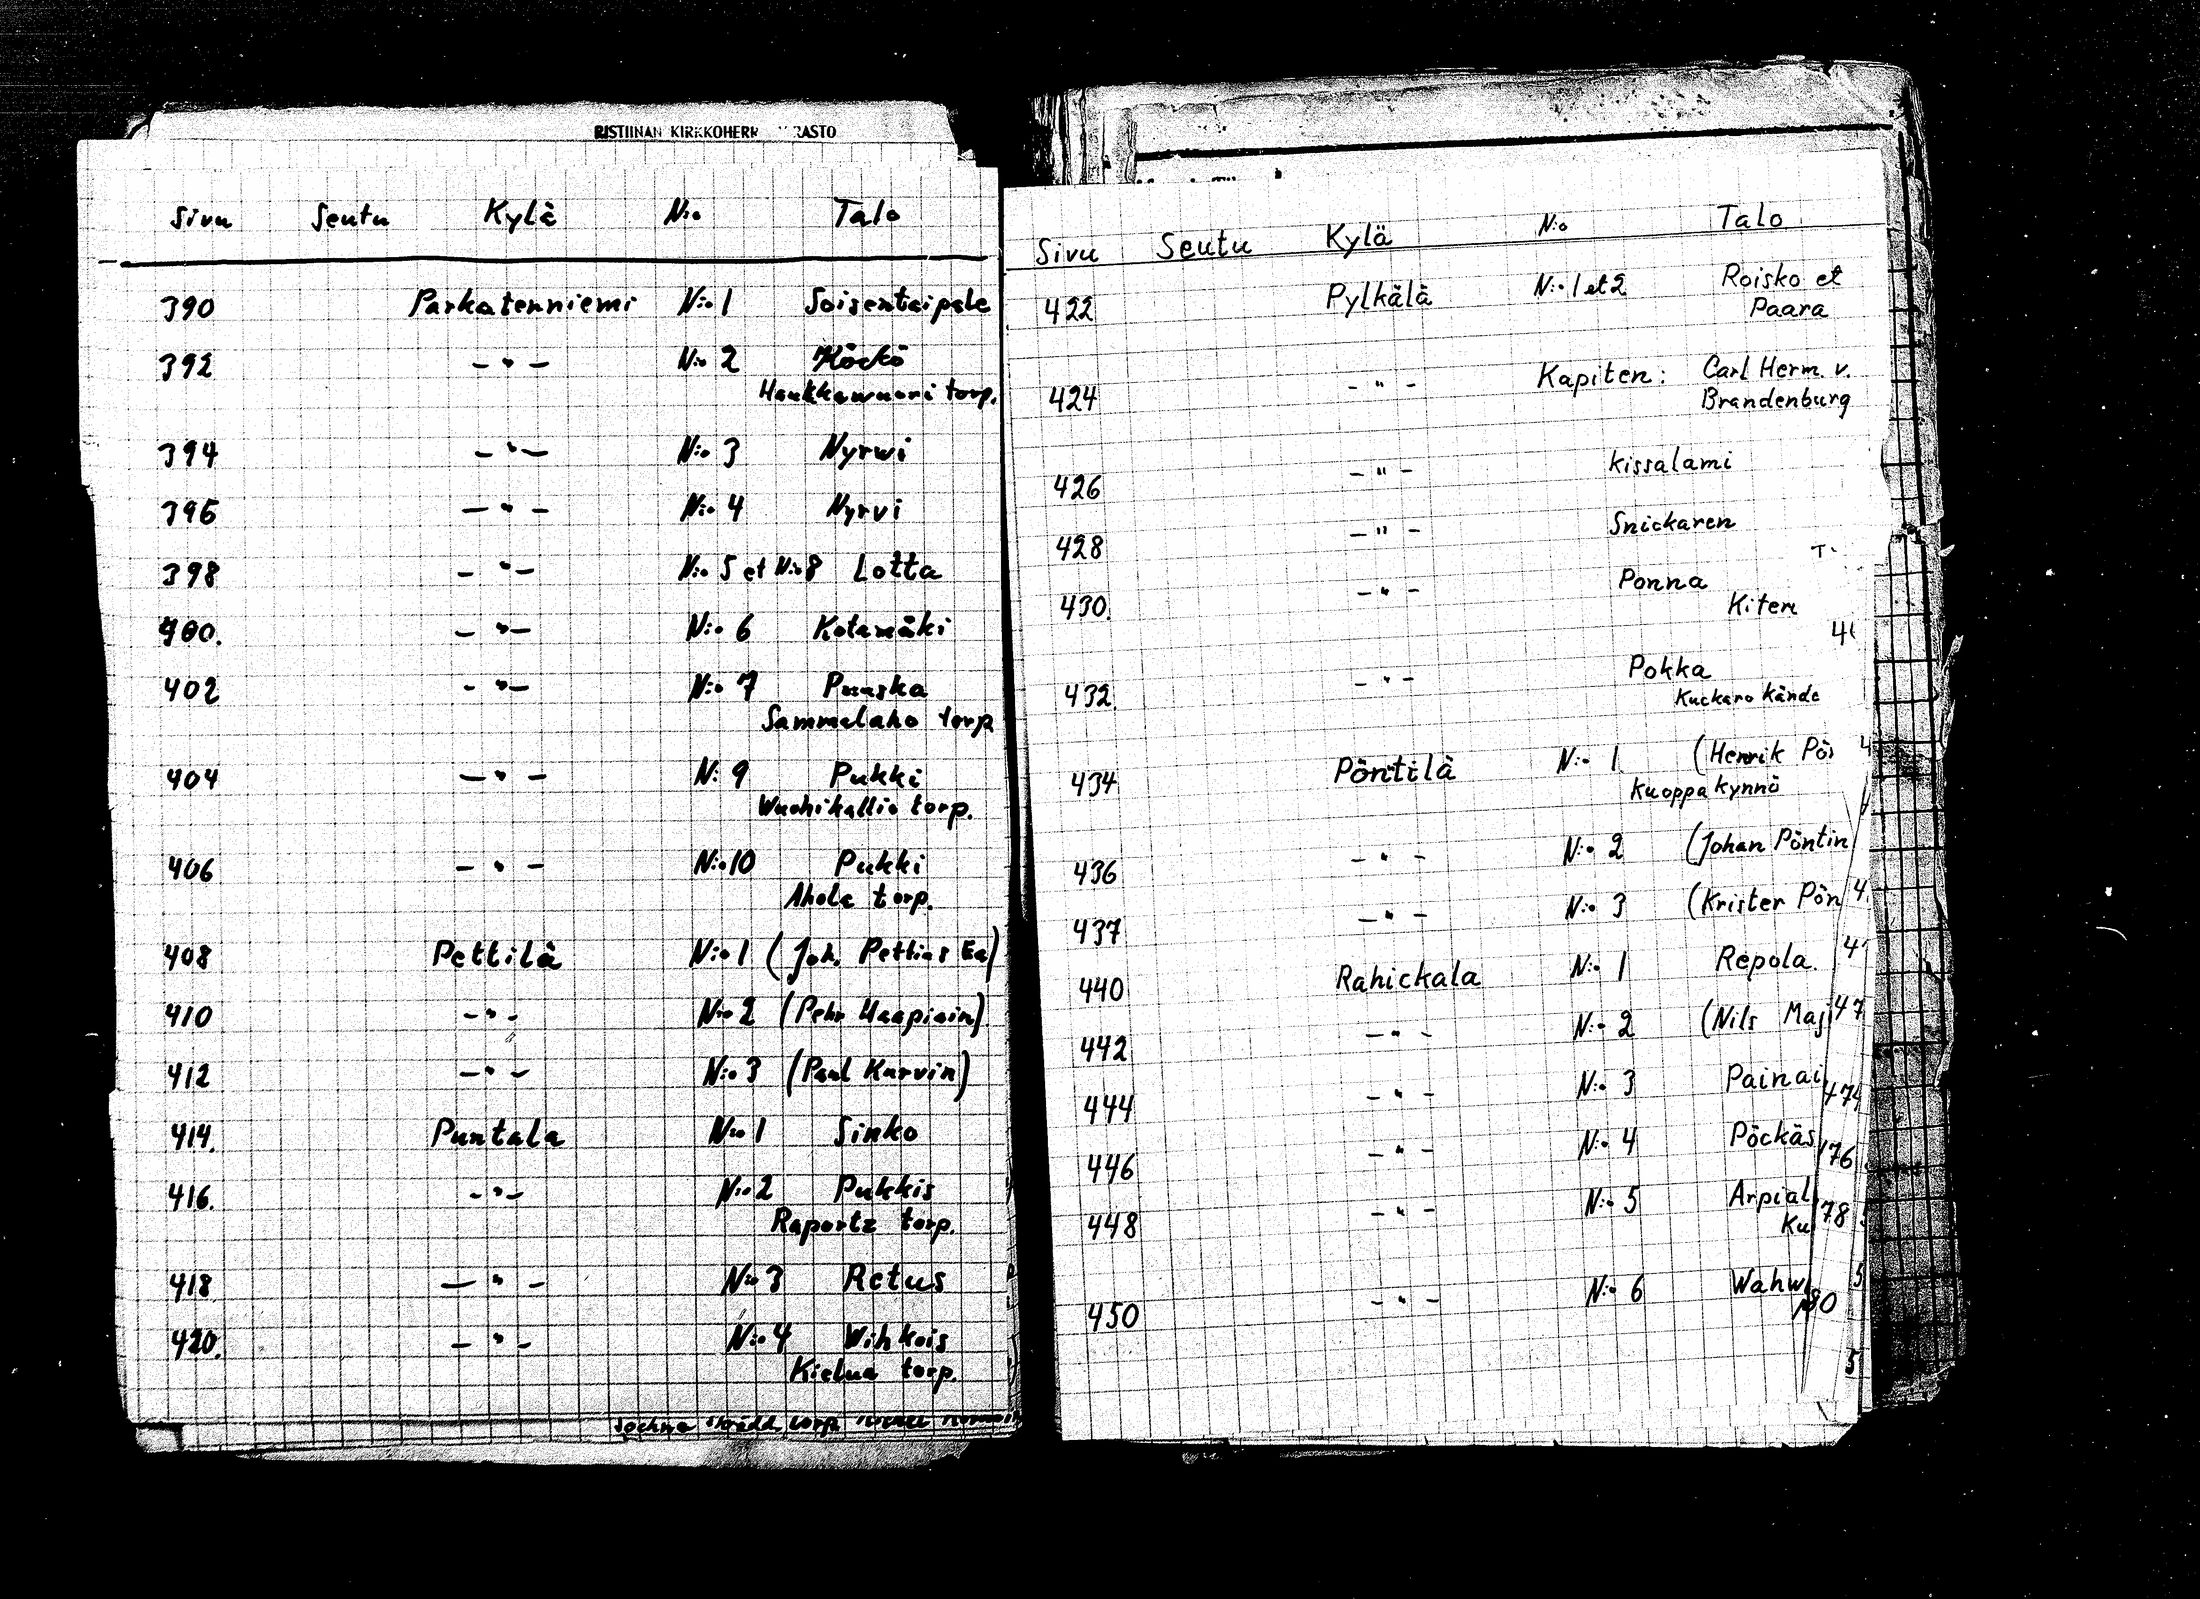 RISTIINAN KIRKKOHERR RASTO
Sivu Seutu Kylä N:o Talo
390 Parkatenniemi N:o 1 Soisentaipale
392 - " - N:o 2 Höckö
Haukkawuori torp.
394 - " - N:o 3 Nyrwi
396 - " - N:o 4 Nyrvi
398 - " - N:o 5 et N:o 8 Lotta
400. - " - N:o 6 Kotamäki
402 - " - N:o 7 Puuska
Sammalaho torp
404 - " - N: 9 Pukki
Wuohikallio torp.
406 - " - N:o 10 Pukki
Ahola torp.
408 Pettilä N:o 1 (Joh. Pettias Ea)
410 - " - N:o 2 (Pehr Haapiain)
412 - " - N:o 3 (Paul Karvin)
414. Puntala N:o 1 Sinko
416. - " - N:o 2 Pukkis
Raportz torp.
418 - " - N:o 3 Retus
420. - " - N:o 4 Wihkois
Kielua torp.
torp
Sivu Seutu Kylä N:o Talo
422 Pylkälä N:o 1 et 2 Roisko et
Paara
424 - " - Kapiten: Carl Herm. v.
Brandenburg
426 - " - Kissalami
428 - " - Snickaren
430. - " - Ponna
Kiten
432. - " - Pokka
Kuckaro Kände
434 Pöntilä N:o 1 (Henrik Pö
Kuoppakynnö
436 - " - N:o 2 (Johan Pöntin
437 - " - N:o 3 (Krister Pön
440 Rahickala N:o 1 Repola.
442 - " - N:o 2 (Nils Maj
444 - " - N:o 3 Painai
446 - " - N:o 4 Pöckäs
448 - " - N:o 5 Arpial
Ku
450 - " - N:o 6 Wahw
47
474
76
78
80
5
5